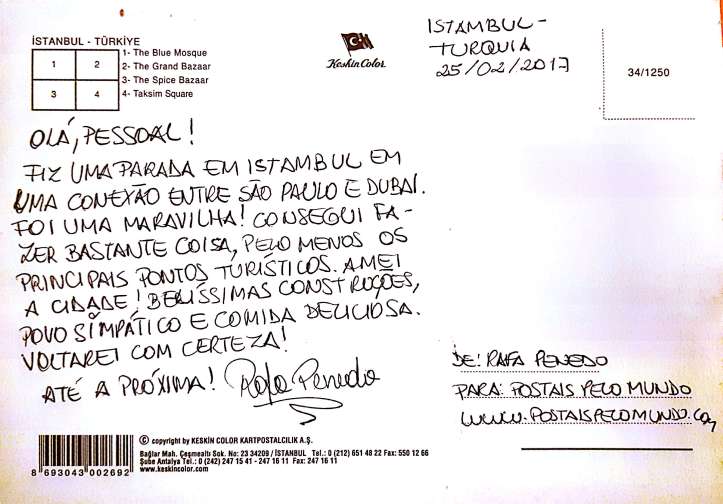 İSTANBUL - TÜRKİYE
1 2 3 4
1- The Blue Mosque
2- The Grand Bazaar
3- The Spice Bazaar
4- Taksim Square
Keskin Color
ISTAMBUL -
TURQUIA
25/02/2017
34/1250
OLÁ, PESSOAL!
FIZ UMA PARADA EM ISTAMBUL EM
UMA CONEXÃO ENTRE SÃO PAULO E DUBAI.
FOI UMA MARAVILHA! CONSEGUI FA-
ZER BASTANTE COISA, PELO MENOS OS
PRINCIPAIS PONTOS TURÍSTICOS. AMEI
A CIDADE! BELÍSSIMAS CONSTRUÇÕES,
POVO SIMPÁTICO E COMIDA DELICIOSA.
VOLTAREI COM CERTEZA!
ATÉ A PRÓXIMA! Rafa Penedo
DE: RAFA PENEDO
PARA: POSTAIS PELO MUNDO
WWW.POSTAISPELOMUNDO.COM
© copyright by KESKİN COLOR KARTPOSTALCILIK A.Ş.
Bağlar Mah. Çeşmealtı Sok. No: 23 34209 / İSTANBUL Tel.: 0 (212) 651 48 22 Fax: 550 12 66
Şube Antalya Tel.: 0 (242) 247 15 41 - 247 16 11 Fax: 247 16 11
www.keskincolor.com
8 693043 002692